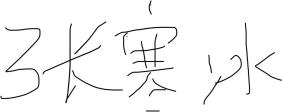 张寒冰